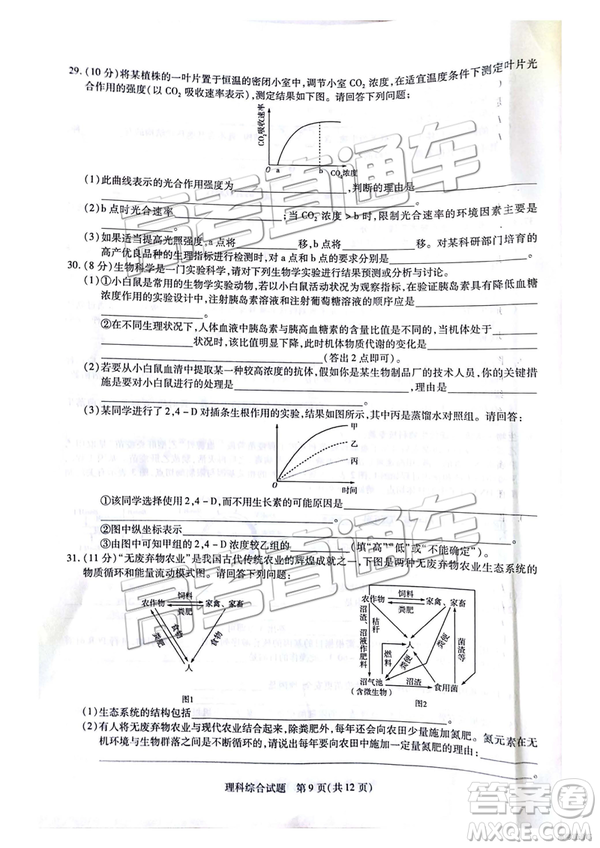 29.(10 分)将某植株的一叶片置于恒温的密闭小室中,调节小室 CO₂ 浓度,在适宜温度条件下测定叶片光
合作用的强度(以 CO₂ 吸收速率表示),测定结果如下图。请回答下列问题:
CO₂吸收速率
0 a b CO₂浓度
(1)此曲线表示的光合作用强度为____,判断的理由是____
____。
(2)b 点时光合速率____;当 CO₂ 浓度 > b 时,限制光合速率的环境因素主要是
____。
(3)如果适当提高光照强度,a点____移,b点____移。对某科研部门培育的
高产优良品种的生理指标进行检测时,对 a 点和 b 点的要求分别是____。
30.(8 分)生物科学是一门实验科学,请对下列生物学实验进行结果预测或分析与讨论。
(1)①小白鼠是常用的生物学实验动物,若以小白鼠活动状况为观察指标,在验证胰岛素具有降低血糖
浓度作用的实验设计中,注射胰岛素溶液和注射葡萄糖溶液的顺序应是____
____。
②在不同生理状况下,人体血液中胰岛素与胰高血糖素的含量比值是不同的,当机体处于____
____状况时,该比值明显下降,此时机体物质代谢的变化是____
____(答出2点即可)。
(2)若要从小白鼠血清中提取某种较高浓度的抗体,假如你是某生物制品厂的技术人员,你的关键措
施是要对小白鼠____
____。
(3)某同学进行了 2,4-D 对插条生根作用的实验,结果如图所示,其中丙是蒸馏水对照组。请回答:
甲
乙
丙
0 时间
①该同学选择使用 2,4-D,而不用生长素的可能原因是____
____。
②图中纵坐标表示____。
③由图中可知甲组的 2,4-D 浓度较乙组的____(填“高”“低”或“不能确定”)。
31.(11 分)“无废弃物农业”是我国古代传统农业的辉煌成就之一,下图是两种无废弃物农业生态系统的
物质循环和能量流动模式图。请回答下列问题:
饲料
农作物 家禽、家畜
粪肥
粪肥 食物 食物
人
图1
饲料
农作物 家禽、家畜
粪肥
沼渣、沼液作肥料 秸秆 人 菌渣
燃料 粪便 粪便
沼气池
(含微生物) 沼渣 食用菌
图2
(1)生态系统的结构包括____。
(2)有人将无废弃物农业与现代农业结合起来,除粪肥外,每年还会向农田少量施加氮肥。氮元素在无
机环境与生物群落之间是不断循环的,请说出每年要向农田不断施加一定量氮肥的原因:____
____。
理科综合试题 第 9 页(共 12 页)
高考直通车
高考直通车